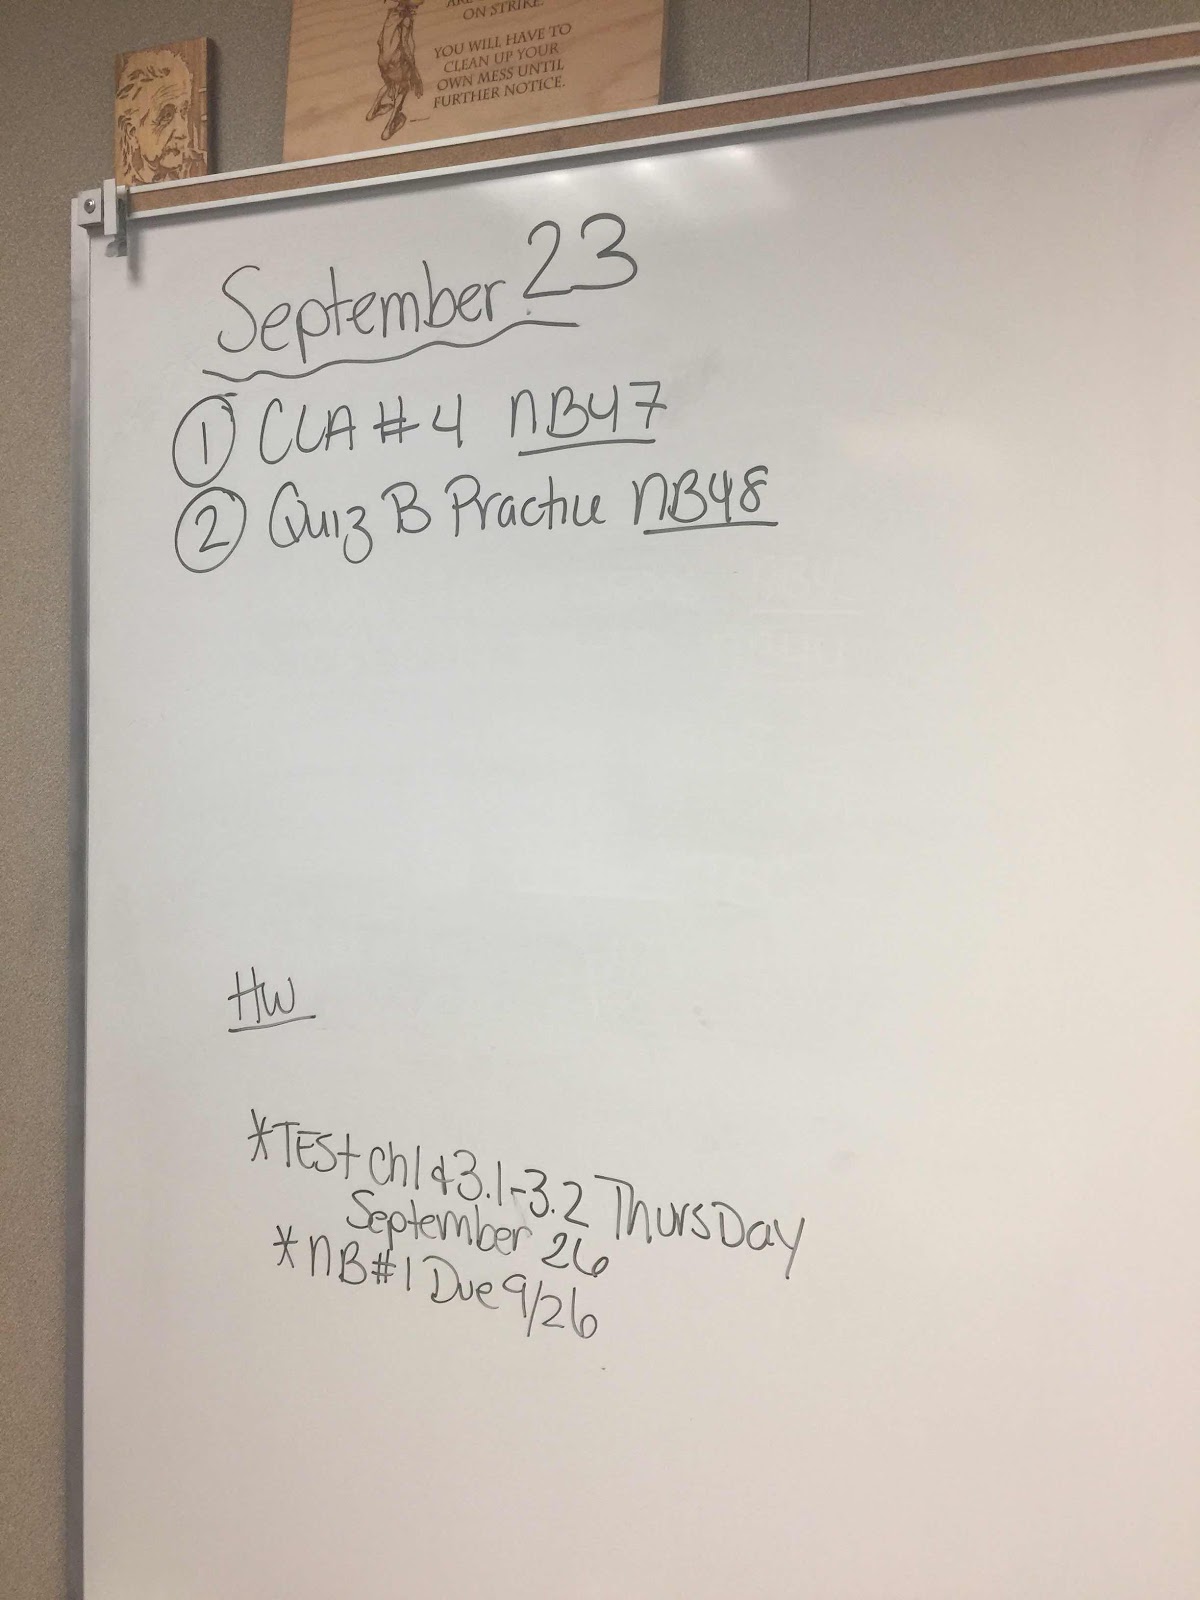 ON STRIKE.
YOU WILL HAVE TO
CLEAN UP YOUR
OWN MESS UNTIL
FURTHER NOTICE.
September 23
1 CLA # 4 NB47
2 Quiz B Practice NB48
HW
*TEST Ch 1 & 3.1-3.2 THURSDAY
September 26
*NB#1 Due 9/26